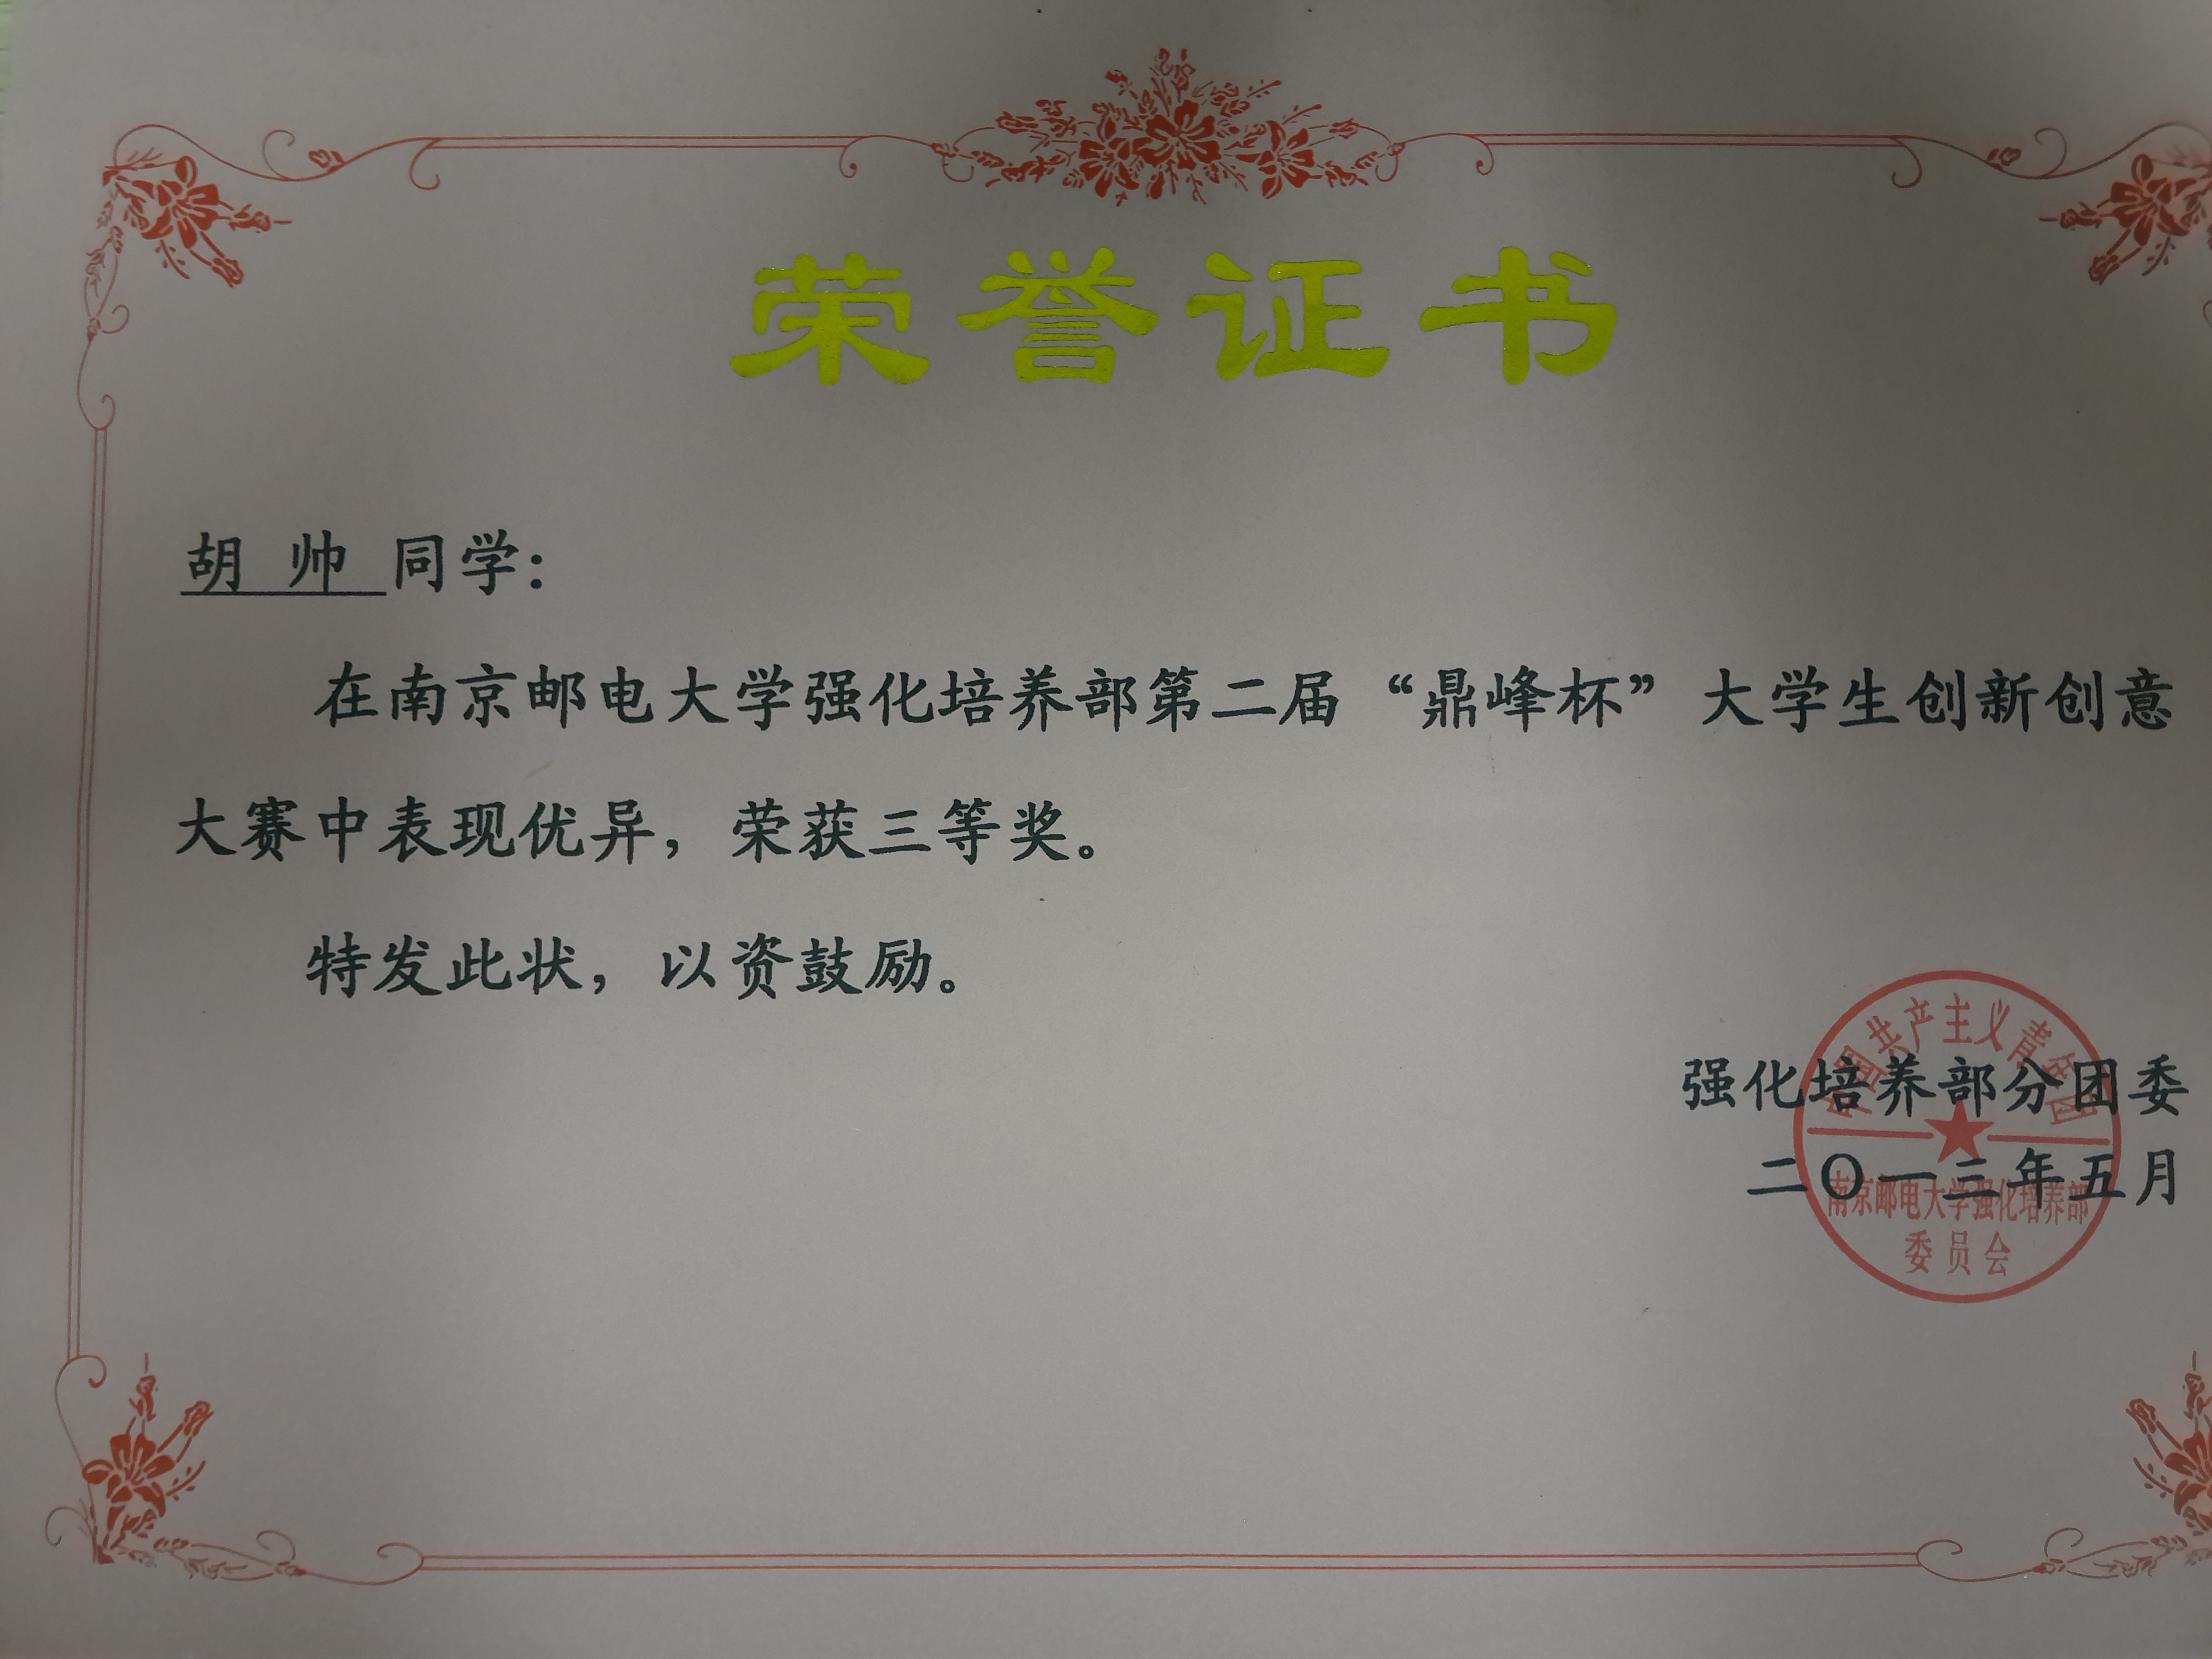 荣誉证书
胡 帅 同学：
在南京邮电大学强化培养部第二届“鼎峰杯”大学生创新创意
大赛中表现优异，荣获三等奖。
特发此状，以资鼓励。
强化培养部分团委
二〇一三年五月
中国共产主义青年团
南京邮电大学强化培养部
委员会